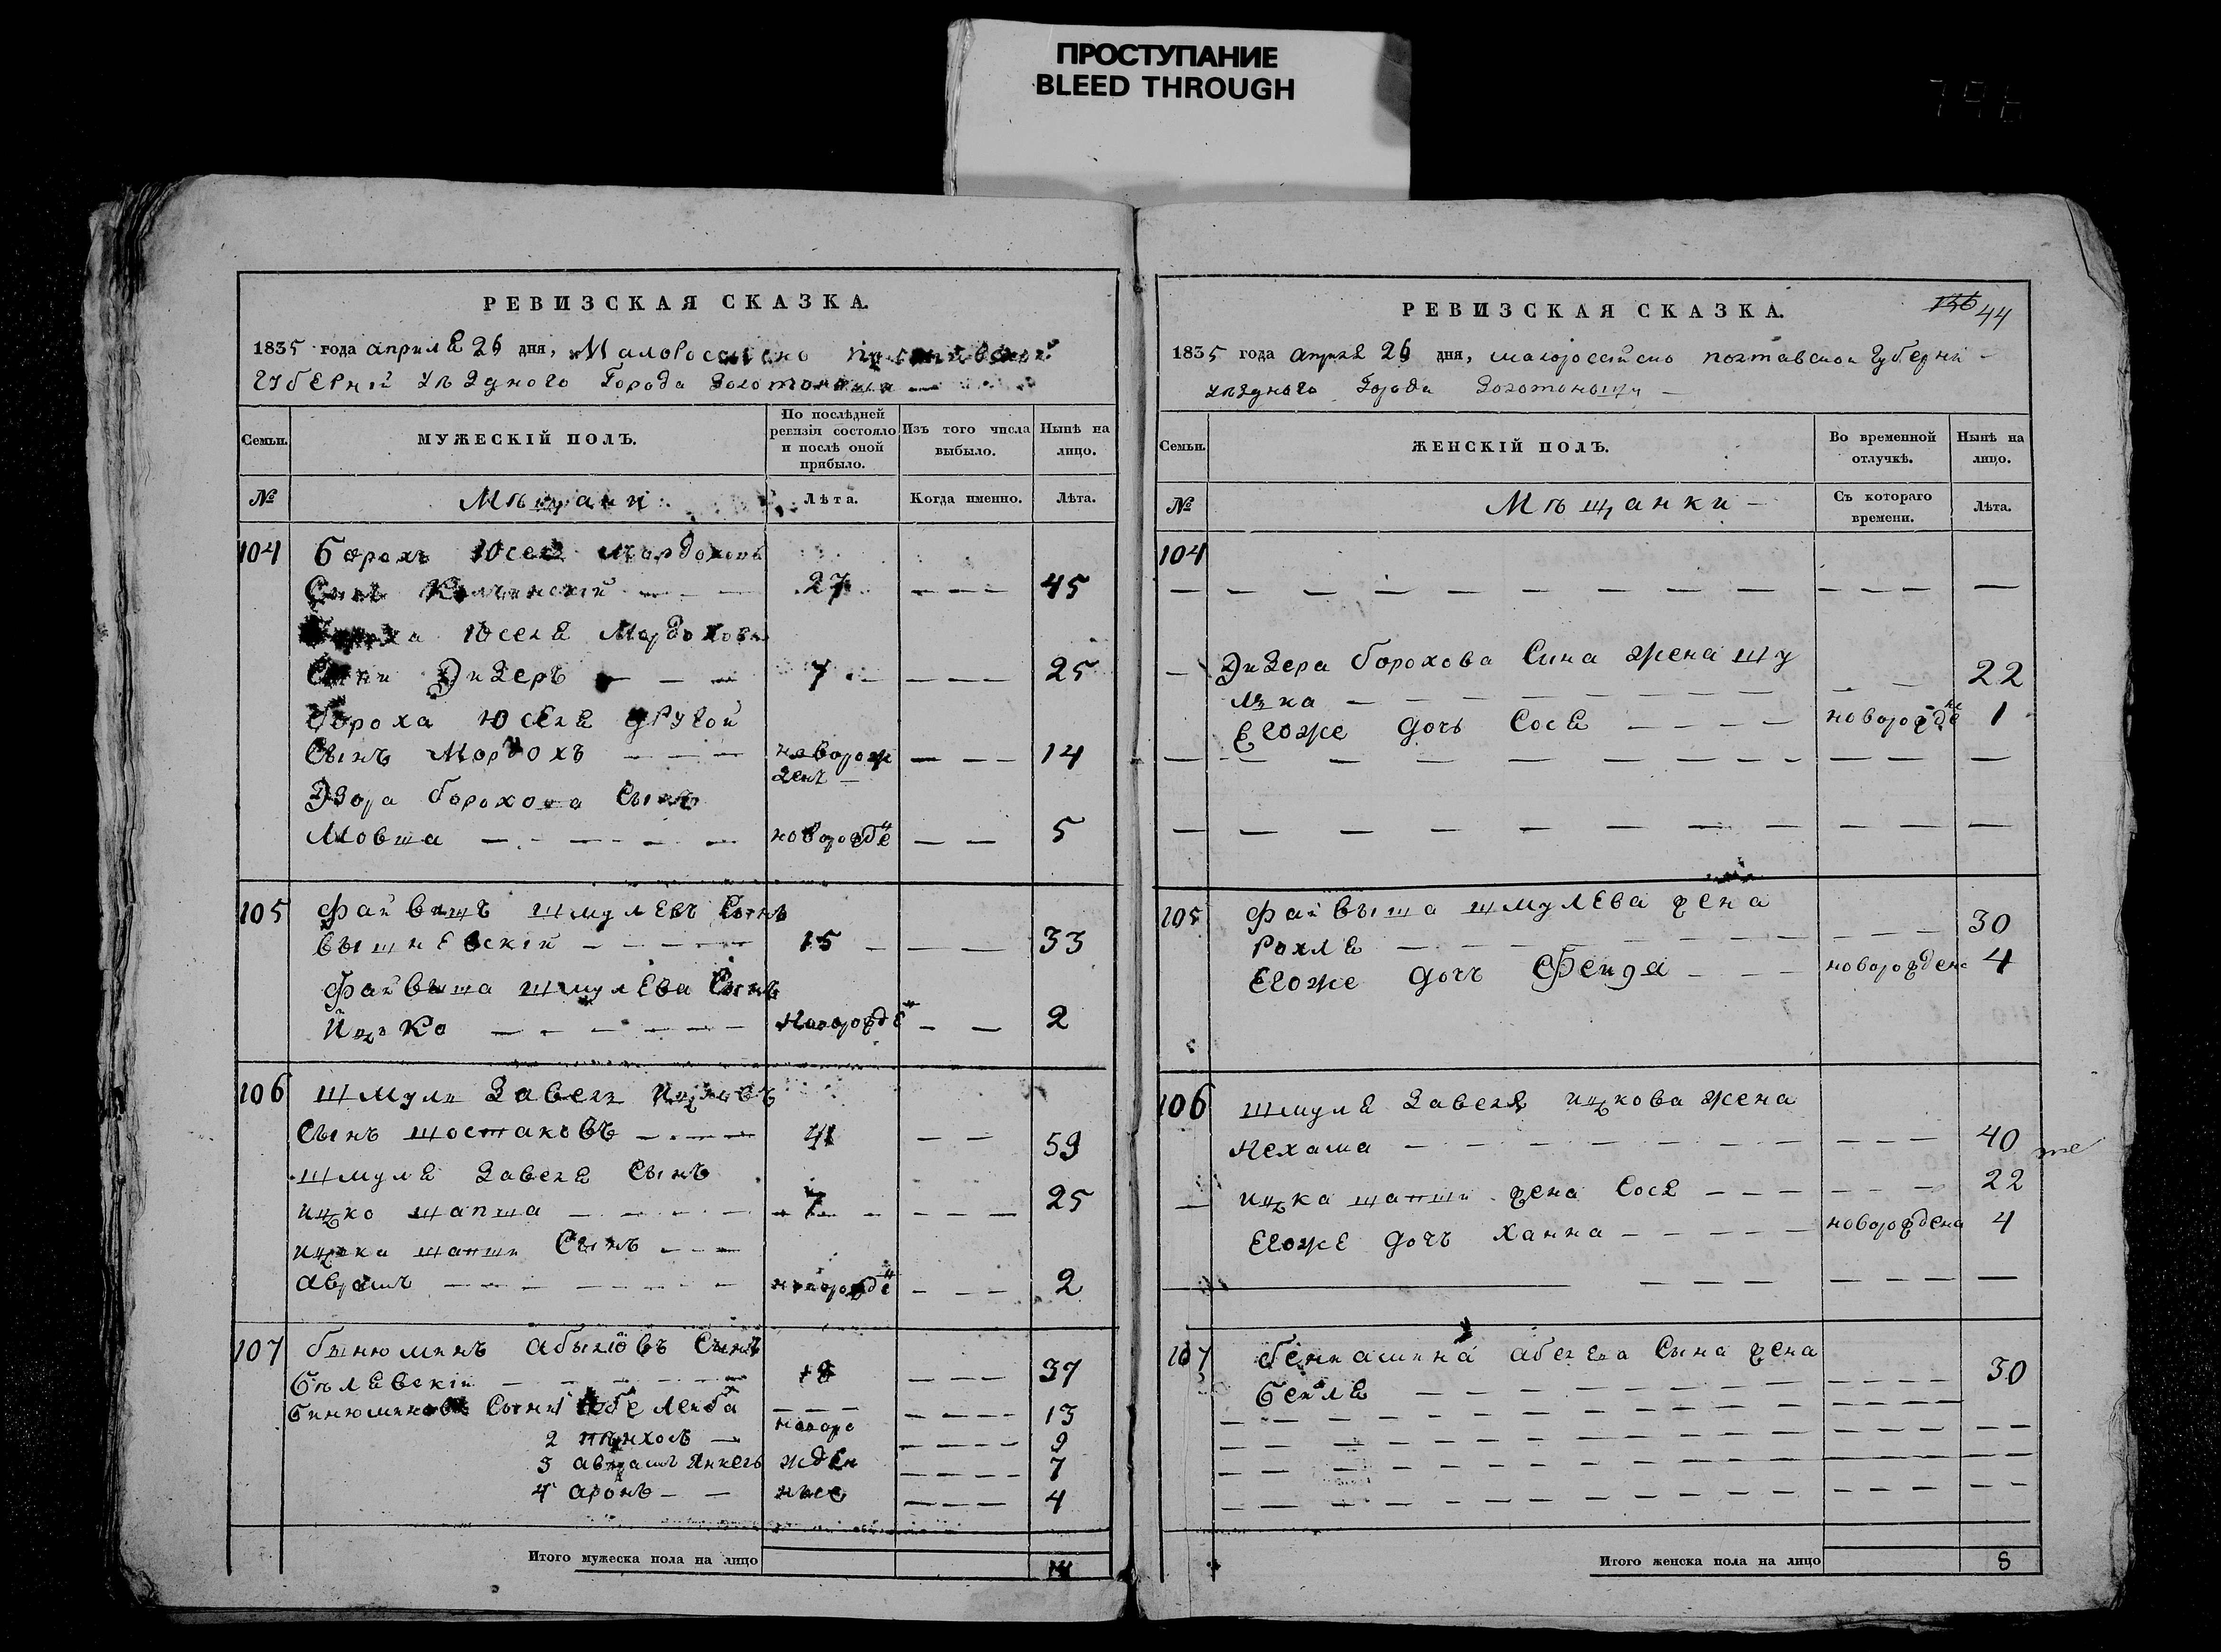 ПРОСТУПАНИЕ
BLEED THROUGH
РЕВИЗСКАЯ СКАЗКА.
1835 года апреля 26 дня, Малоросейско полтавской
Губерній уезднаго Города Золотоноши
Семьи.
МУЖЕСКІЙ ПОЛЪ.
По послѣдней ревизіи состояло и послѣ оной прибыло.
Изъ того числа выбыло.
Нынѣ на лицо.
№
Мѣщани
Лѣта.
Когда именно.
Лѣта.
104 Борохъ Юсея Мордохов
Сынъ 27 — — — 45
Юселя Мордохова
7 — — — 25
Бороха Юселя другой
Сынъ Мордохъ — — — новорож
денъ — — — 14
борохова Сынъ
Мовша — — — новорожде — — 5
105 Файвишъ шмулевъ Сынъ
вышневскій — — — 15 — — — 33
Файвыша шмулева Сынъ
Ицко — — — новорожде — — 2
106 Шмуль Завель Ицковъ
Сынъ шостаковъ — — — 41 — — 59
Шмуля Завеля Сынъ
ицко шапша — — — 7 — — — 25
ицка шапши Сынъ — — —
аврамъ — — — новорожде — — — 2
107 бынюминъ абылювъ Сынъ
Бѣлявскій — — — 18 — — — 37
Бинюминовы Сыни Лейба — — — 13
2 пынхосъ — новоро — — — 9
3 аврамъ Янкель жден — — — 7
4 аронъ — — ные — — — 4
Итого мужеска пола на лицо 14
РЕВИЗСКАЯ СКАЗКА.
136 44
1835 года апреля 26 дня, малоросейско полтавской Губерній
уезднаго Города Золотоноши —
Семьи.
ЖЕНСКІЙ ПОЛЪ.
Во временной отлучкѣ.
Нынѣ на лицо.
№
Мѣщанки —
Съ котораго времени.
Лѣта.
104
борохова Сина жена шу
лка — — — 22
Егоже дочь Сося — — — новорожде 1
105 Файвыша шмулева жена
Рохля — — — 30
Егоже дочъ Фейда — — — новорождена 4
106 шмуля Завеля ицкова жена
Нехама — — — 40
ицка шапши жена Сося — — — 22
Егоже дочъ Ханна — — — новорождена 4
107 бениамина абелева Сына жена
Бейля — — — 30
Итого женска пола на лицо 8